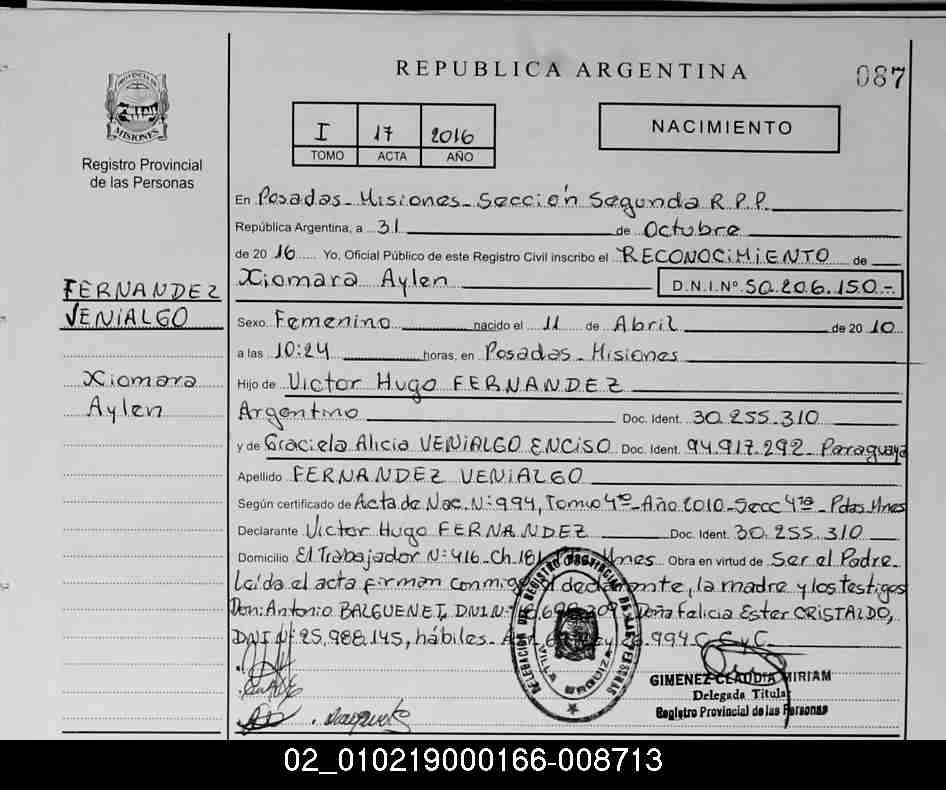 REPUBLICA ARGENTINA
087
PROVINCIA DE
MISIONES
Registro Provincial
de las Personas
I 17 2016
TOMO ACTA AÑO
NACIMIENTO
En Posadas - Misiones - Sección Segunda R.P.P.
República Argentina, a 31 de Octubre
de 2016 Yo, Oficial Público de este Registro Civil inscribo el RECONOCIMIENTO de
Xiomara Aylen D.N.I.Nº 50.206.150.-
FERNANDEZ
VENIALGO
Xiomara
Aylen
Sexo Femenino nacido el 11 de Abril de 2010
a las 10:24 horas, en Posadas - Misiones
Hijo de Victor Hugo FERNANDEZ
Argentino Doc. Ident. 30.255.310
y de Graciela Alicia VENIALGO ENCISO Doc. Ident. 94.917.292 - Paraguaya
Apellido FERNANDEZ VENIALGO
Según certificado de Acta de Nac. Nº: 994, Tomo 4to - Año 2010 - Secc 4ta - Pdas Mnes
Declarante Victor Hugo FERNANDEZ Doc. Ident. 30.255.310
Domicilio El Trabajador Nº: 416 - Ch. 181 Mnes Obra en virtud de Ser el Padre -
Leída el acta firman conmigo el declarante, la madre y los testigos
Don: Antonio DNI Nº Doña Felicia Ester CRISTALDO,
DNI Nº 25.988.145, hábiles. 994 C.C. y C.
DELEGACION DEL REGISTRO PROVINCIAL DE LAS PERSONAS
VILLA URQUIZA
GIMENEZ CLAUDIA MIRIAM
Delegada Titular
Registro Provincial de las Personas
02_010219000166-008713